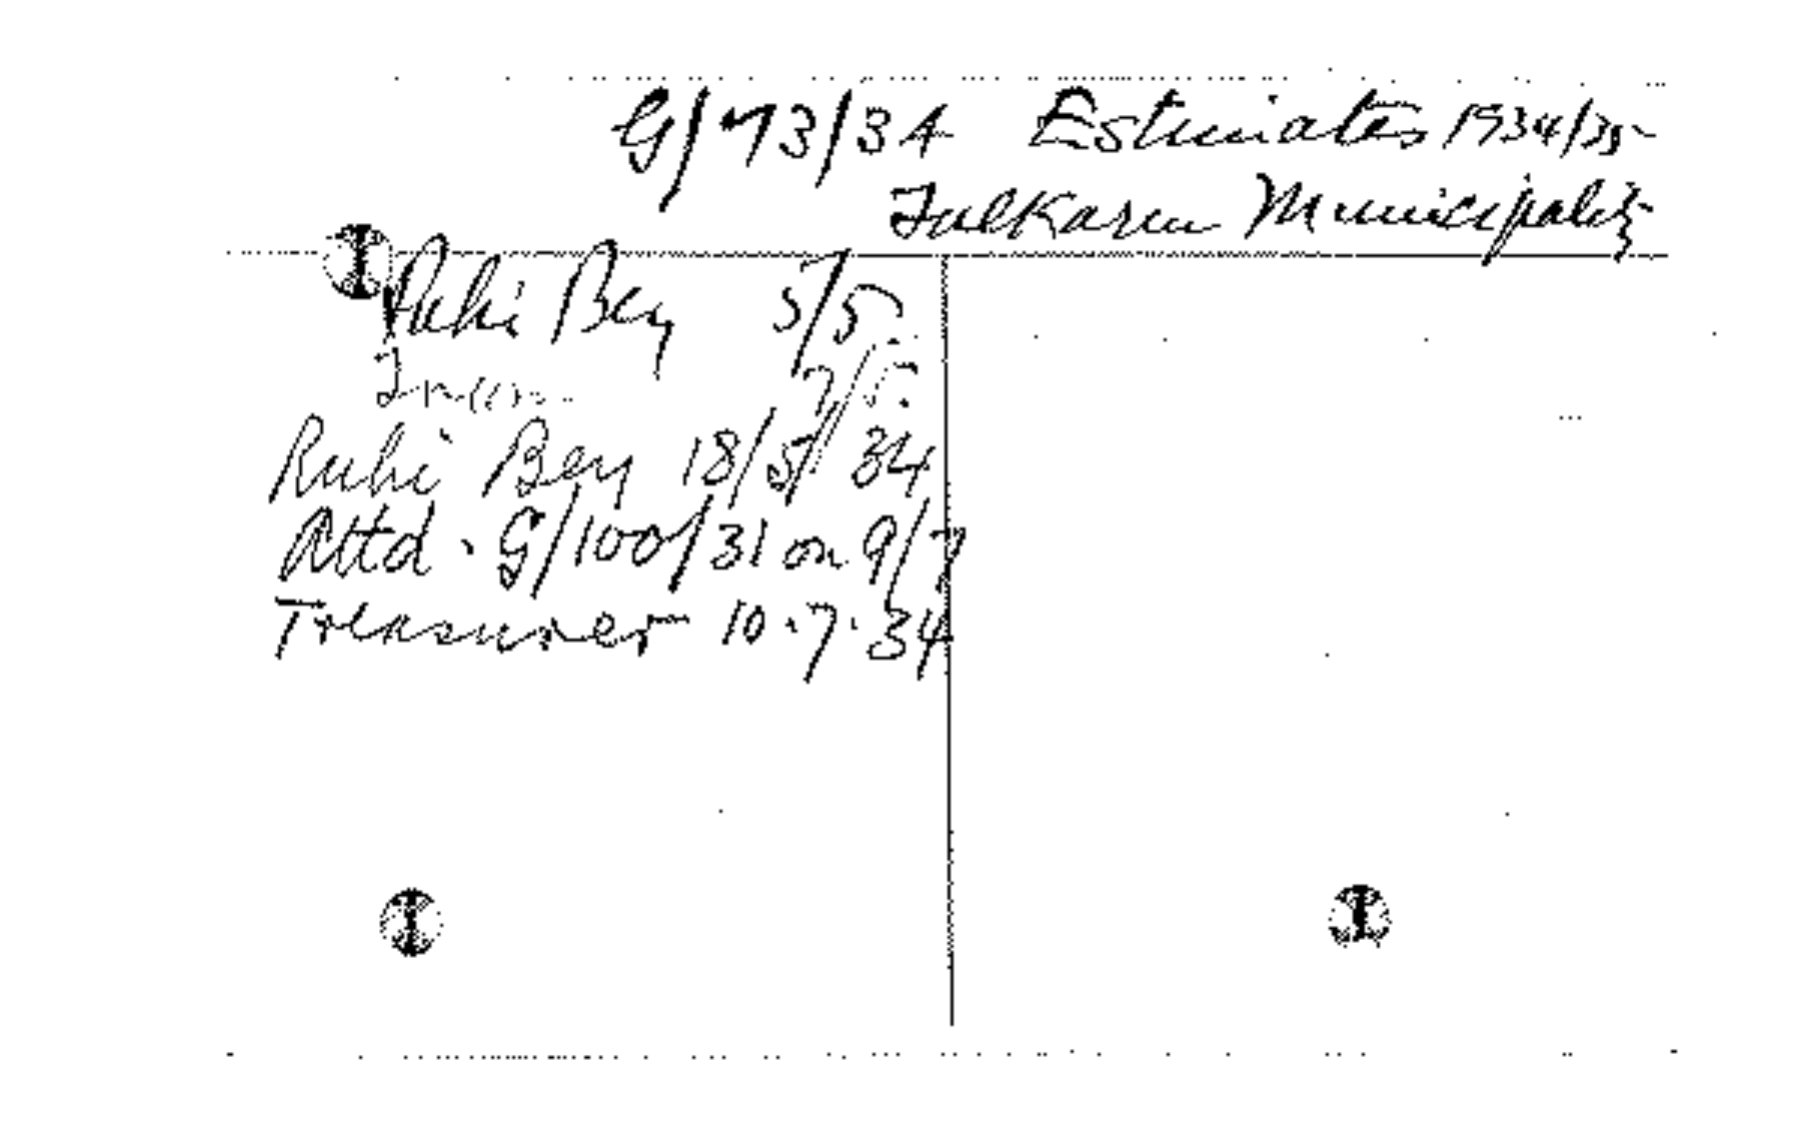 G/73/34 Estimates 1934/35
Tulkarem Municipality
Ruhi Bey 5/5
7/5.
Ruhi Bey 18/5/34
Attd. G/100/31 on 9/7
Treasurer 10.7.34